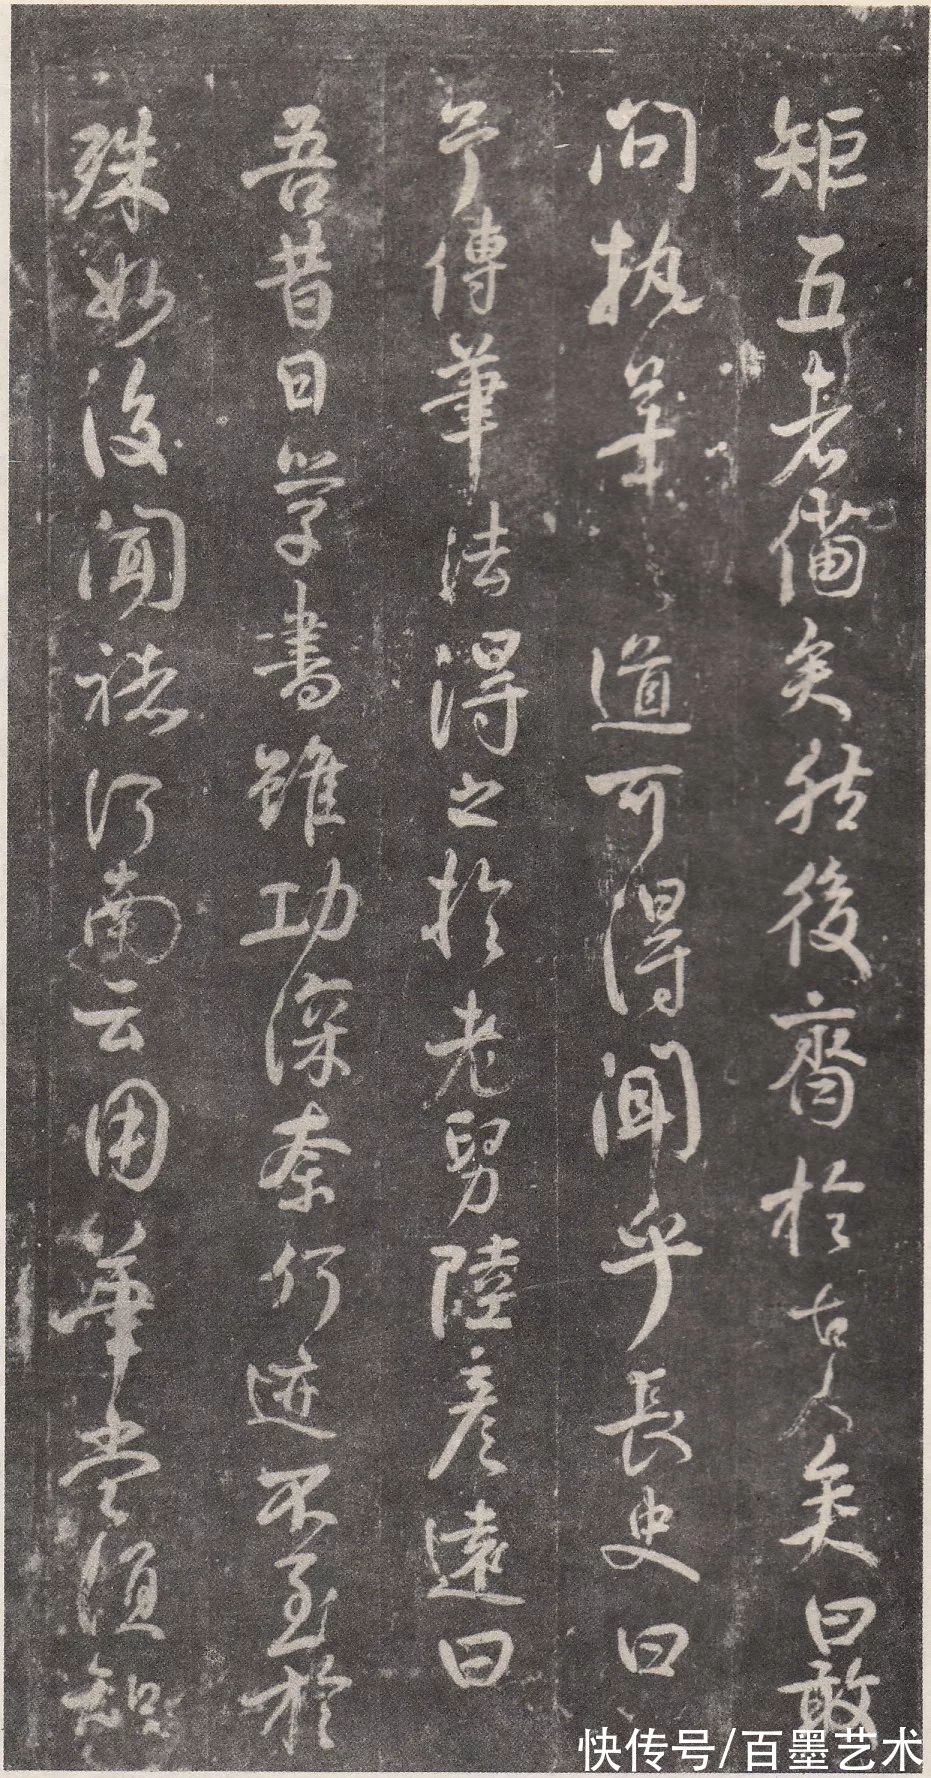 矩五者備矣然後齊於古人矣曰敢
問執筆之道可得聞乎長史曰
予傳筆法得之於老舅陸彦遠曰
吾昔日學書雖功深奈何迹不至於
殊妙後聞褚河南云用筆當須知
快传号/百墨艺术